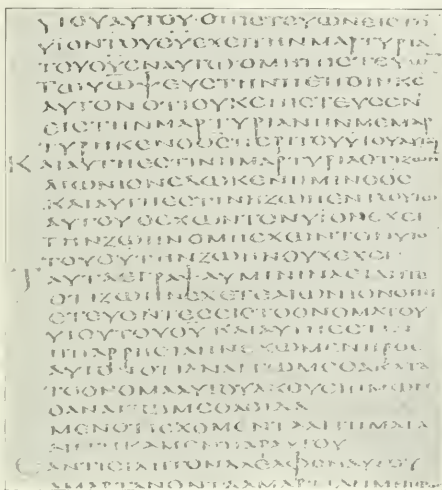 ΥΙΟΥΑΥΤΟΥ·ΟΠΙCΤΕΥΩΝΕΙCΤΟ
ΥΙΟΝΤΟΥΘΥΕΧΕΙΤΗΝΜΑΡΤΥΡΙΑ
ΤΟΥΘΥΕΝΑΥΤΩΟΜΗΠΙCΤΕΥΩ
ΤΩΥΩΨΕΥCΤΗΝΠΕΠΟΙΗΚΕ
ΑΥΤΟΝΟΤΙΟΥΚΕΠΙCΤΕΥCΕΝ
ΕΙCΤΗΝΜΑΡΤΥΡΙΑΝΗΝΜΕΜΑΡ
ΤΥΡΗΚΕΝΟΘCΠΕΡΙΤΟΥΥΙΟΥΑΥΤΟΥ
ΚΑΙΑΥΤΗΕCΤΙΝΗΜΑΡΤΥΡΙΑΟΤΙΖΩΗΝ
ΑΙΩΝΙΟΝΕΔΩΚΕΝΗΜΙΝΟΘC
ΚΑΙΑΥΤΗΕCΤΙΝΗΖΩΗΕΝΤΩΥΙΩ
ΑΥΤΟΥΟΕΧΩΝΤΟΝΥΙΟΝΕΧΕΙ
ΤΗΝΖΩΗΝΟΜΗΕΧΩΝΤΟΝΥΙΟ
ΤΟΥΘΥΤΗΝΖΩΗΝΟΥΚΕΧΕΙ·
ΤΑΥΤΑΕΓΡΑΨΑΥΜΙΝΙΝΑΕΙΔΗΤΕ
ΟΤΙΖΩΗΝΕΧΕΤΕΑΙΩΝΙΟΝΟΙΠΙ
CΤΕΥΟΝΤΕCΕΙCΤΟΟΝΟΜΑΤΟΥ
ΥΙΟΥΤΟΥΘΥ ΚΑΙΑΥΤΗΕCΤΙΝ
ΗΠΑΡΡΗCΙΑΗΝΕΧΩΜΕΝΠΡΟC
ΑΥΤΟ ΟΤΙΑΝΑΙΤΩΜΕΘΑΚΑΤΑ
ΤΟΟΝΟΜΑΑΥΤΟΥΑΚΟΥΕΙΗΜΩΝ
ΟΑΝΑΙΤΩΜΕΘΑΟΙΔΑ
ΜΕΝΟΤΙΕΧΟΜΕΝΤΑΑΙΤΗΜΑΤΑ
ΑΗΤΗΚΑΜΕΝΠΑΡΑΥΤΟΥ
ΕΑΝΤΙCΙΔΗΤΟΝΑΔΕΛΦΟΝΑΥΤΟΥ
ΑΜΑΡΤΑΝΟΝΤΑΑΜΑΡΤΙΑΝΜΗ